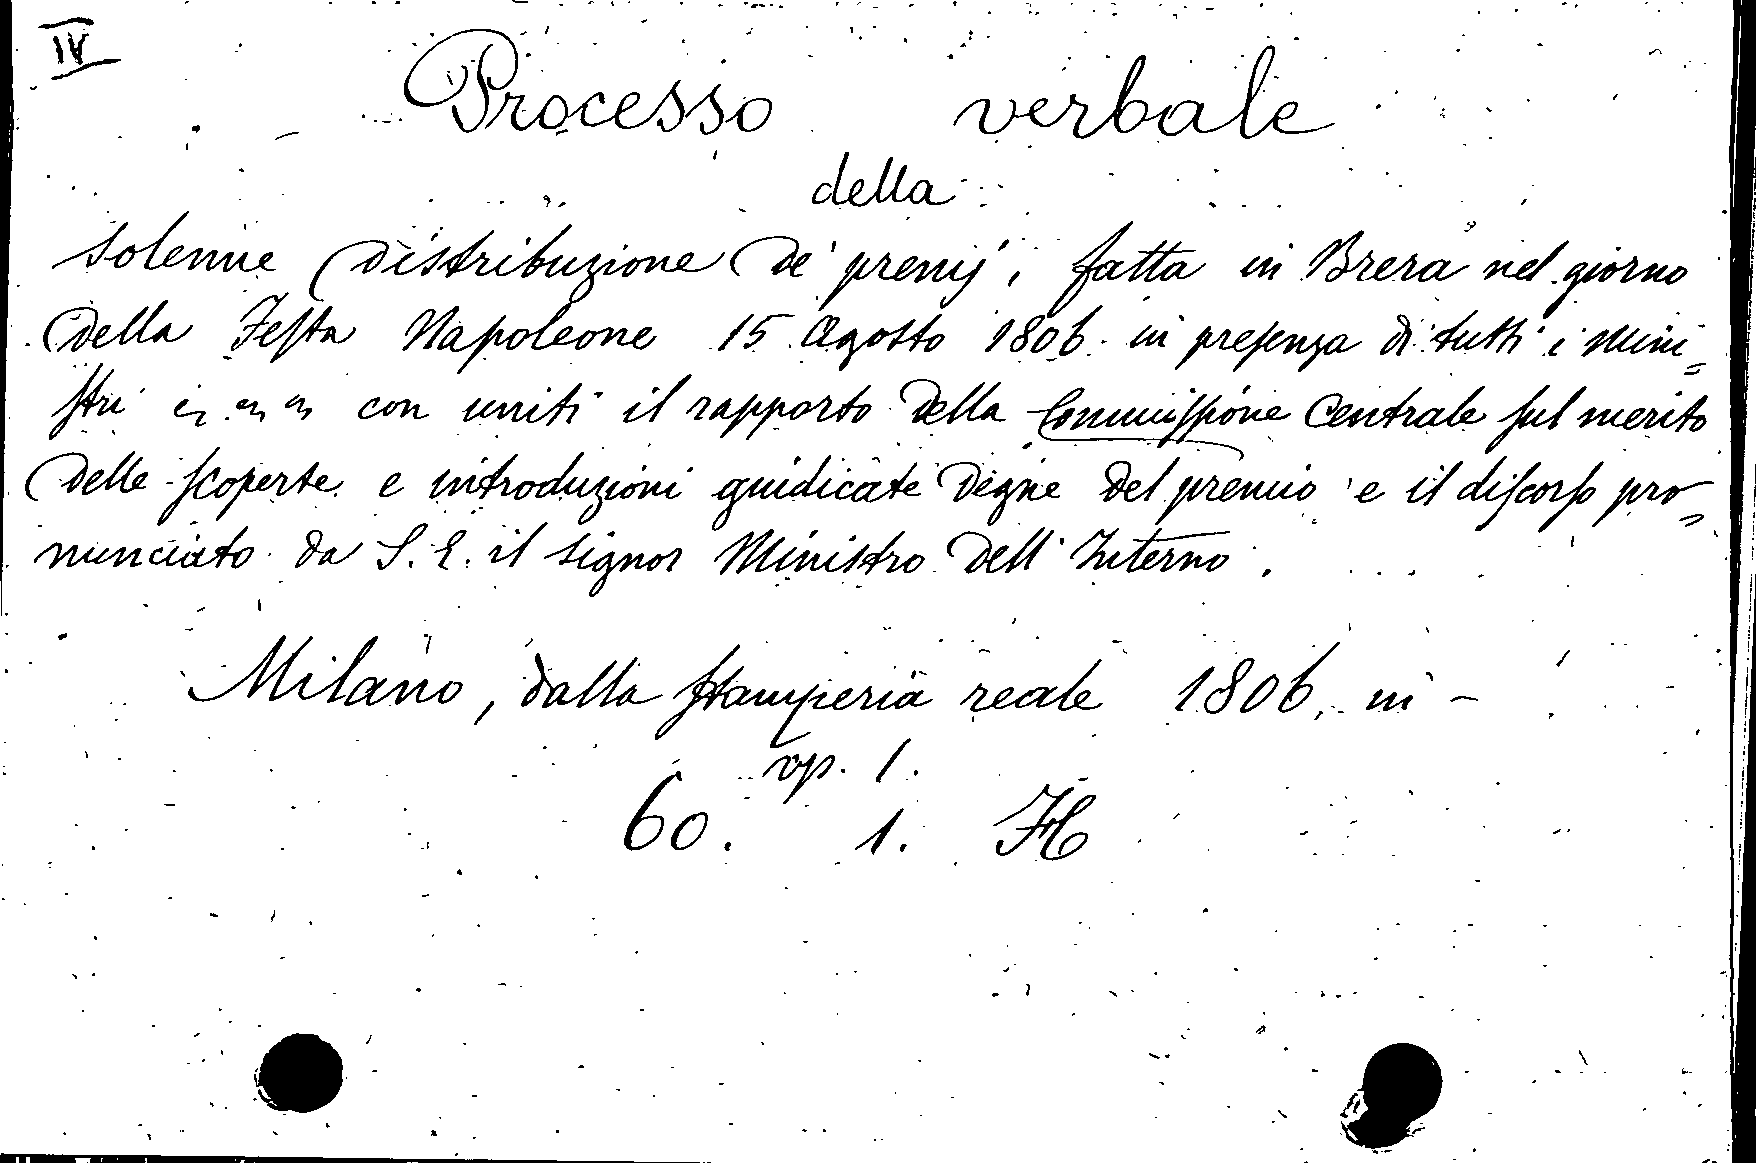 IV
Processo verbale
della
solenne distribuzione de' premj, fatta in Brera nel giorno
della Festa Napoleone 15 Agosto 1806. in presenza di tutti i Mini=
stri con uniti il rapporto della Commissione Centrale sul merito
delle scoperte e introduzioni giudicate degne del premio e il discorso pro=
nunciato da S. E. il signor Ministro dell' Interno.
Milano, dalla stamperia reale 1806. in -
op. 1.
60. 1. H